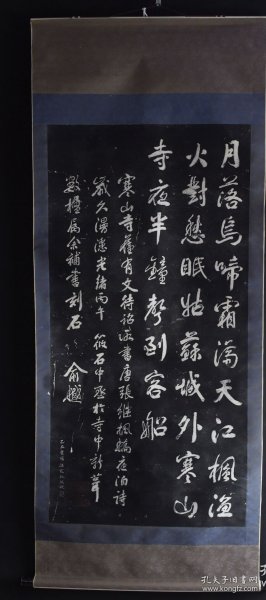 月落烏啼霜滿天江楓漁
火對愁眠姑蘇城外寒山
寺夜半鐘聲到客船
寒山寺舊有文待詔所書唐張繼楓橋夜泊詩
歲久漫漶光緒丙午筱石中丞於寺中新葺
數楹屬余補書刻石 俞樾
孔夫子旧书网